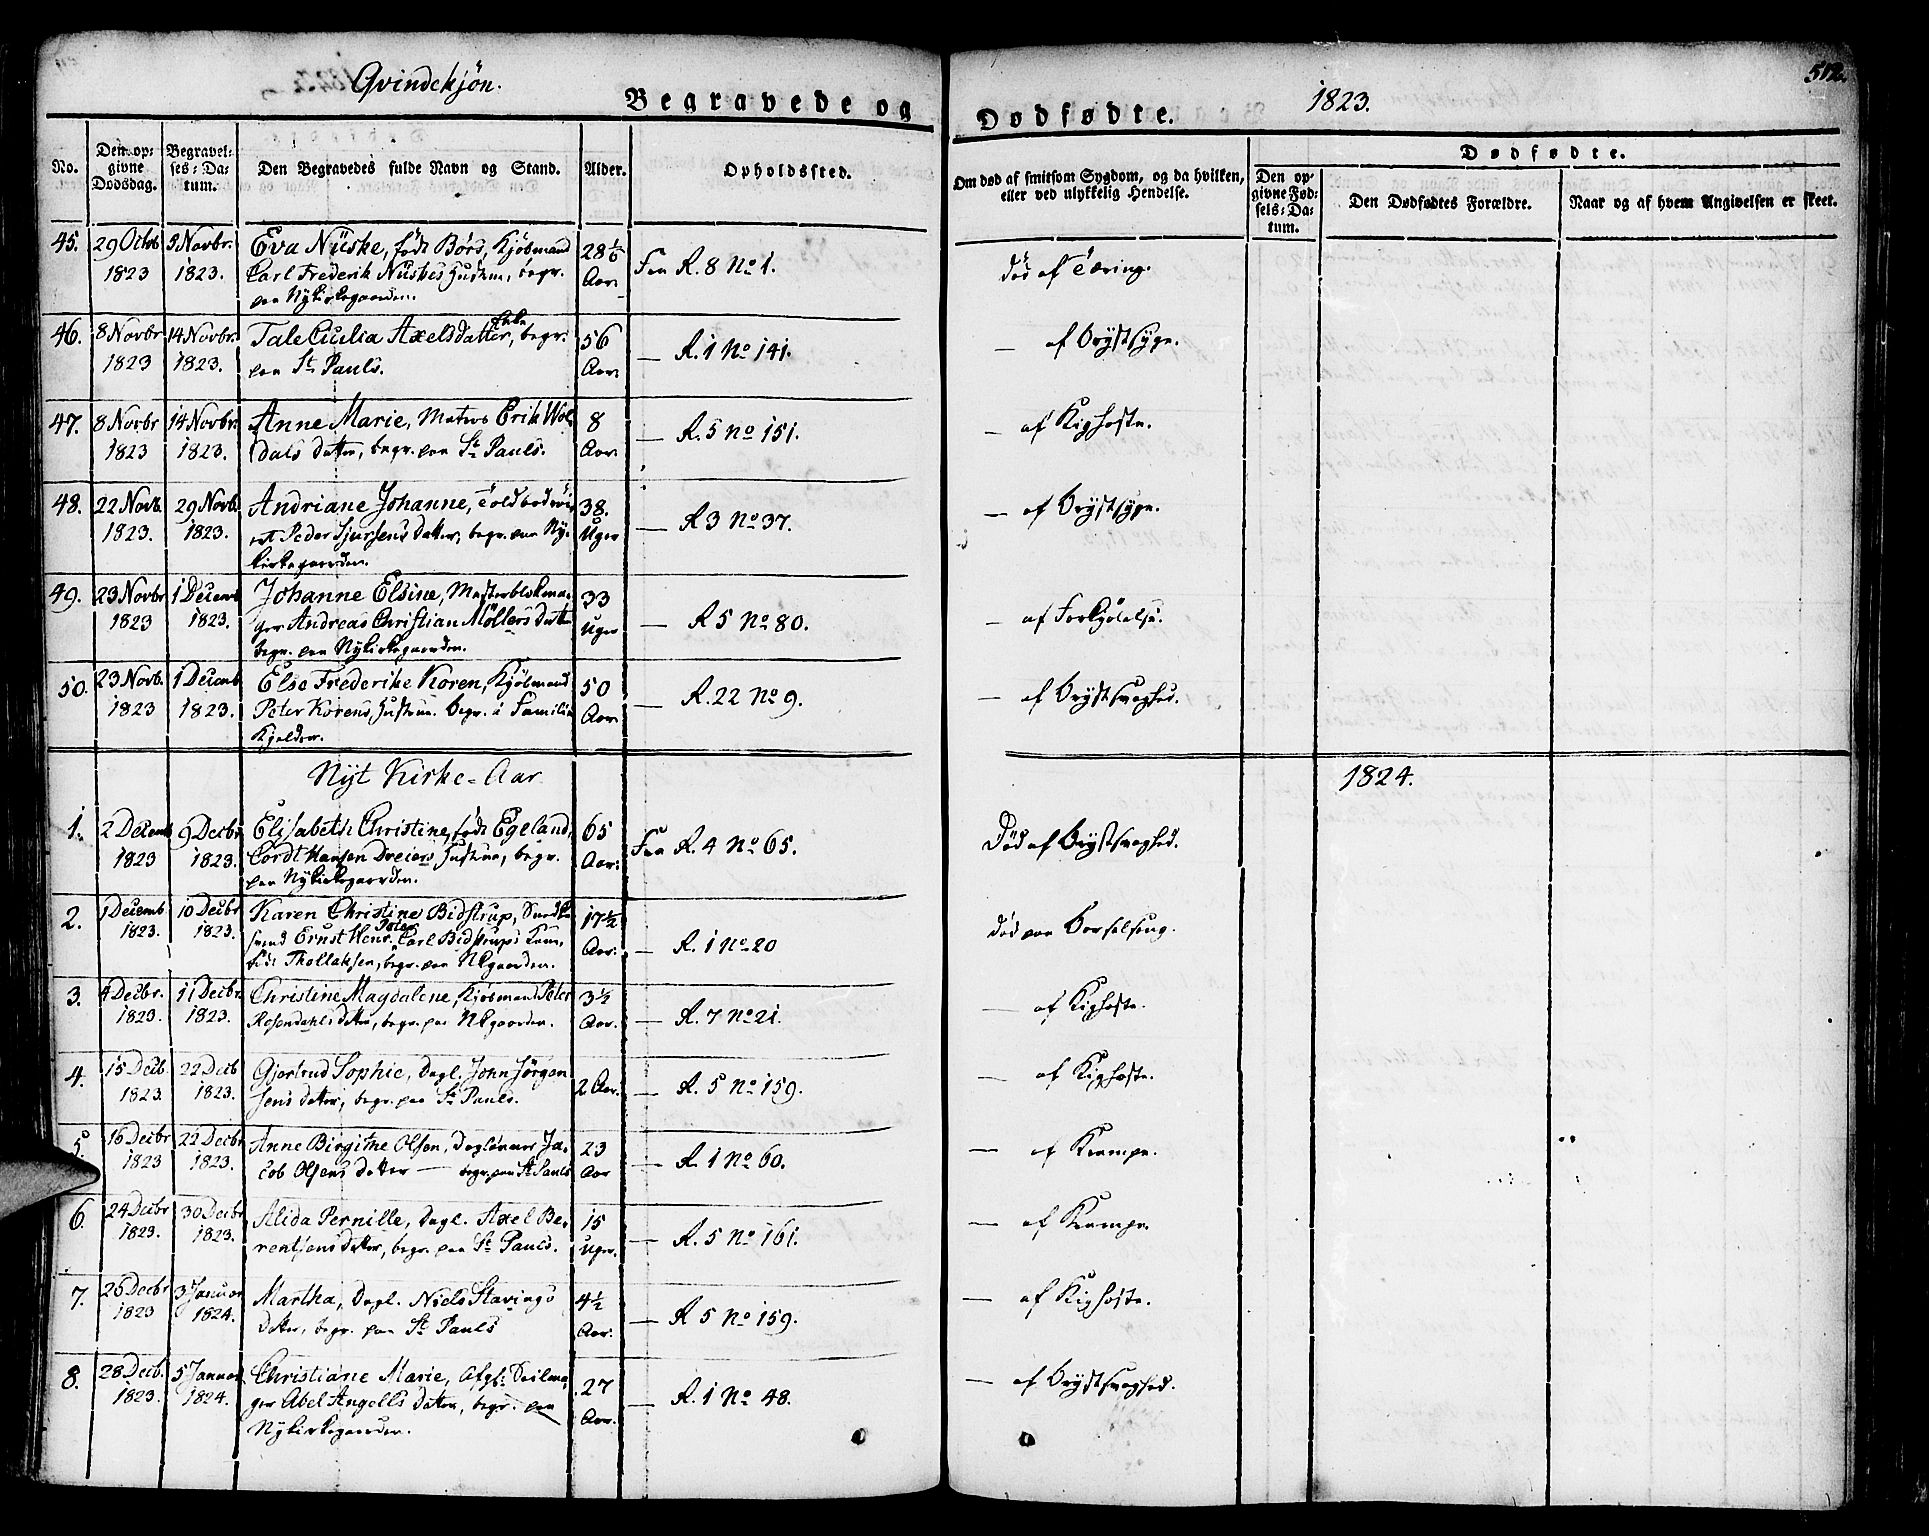 Qvindekjön.
Begravede og
Dødfødte.
1823.
512.
No.
Den op-
givne
Dødsdag.
Begravel-
ses-Da-
tum.
Den Begravedes fulde Navn og Stand.
Alder.
Opholdssted.
Om død af smitsom Sygdom, og da hvilken,
eller ved ulykkelig Hendelse.
Dødfødte.
Den op-
givne Fød-
sels-Da-
tum.
Den Dødfødtes Forældre.
Naar og af hvem Angivelsen er skeet.
45. 29 Octob 3 Novbr. Eva Nüske, født Börs, Kjöbmand 28½
1823 1823. Carl Frederik Nüskes Hustru, begr. Aar. Fra R. 8 No 1. död af Tæring.
paa Nykirkegaarden.
46. 8 Novbr 14 Novbr. Tale Axelsdatter, Enke, begr. 56
1823 1823. paa St Pauls. Aar. — R. 1 No 141. — af Brystsyge.
47. 8 Novbr 14 Novbr. Anne Marie, Matros Erik Wol 8
1823 1823. dals Datter, begr. paa St Pauls. Aar. — R. 5 No 151. — af Kighoste.
48. 22 Novb. 29 Novb. Andriane Johanne, 38.
1823. 1823. Peder Sjursens Datter, begr. paa Ny- Uger — R 3 No 37. — af Brystsyge.
kirkegaarden.
49. 23 Novbr 1 Decemb Johanne Elsine, Mesterblokma- 33
1823 1823. ger Andreas Christian Möllers Datter Uger — R 5 No 80. — af Forkjölelse.
begr. paa Nykirkegaarden.
50. 23 Novb. 1 Decemb Else Frederike Koren, Kjöbmand 50
1823 1823. Peter Korens Hustrue. begr. i Familie Aar. — R. 22 No 9. — af Brystsvaghed.
Kjelder.
Nyt Kirke-Aar
1824.
1. 2 Decemb 9 Decbr Elisabeth Christine, födt Egeland, 65
1823 1823. Cordt Hansen Dreiers Hustrue, begr. Aar. Fra R. 4 No 65. Död af Brystsvaghed.
paa Nykirkegaarden.
2. 1 Decemb 10 Decbr Karen Christine Bidstrup, Snedker 17½
1823. 1823. svend Ernst Henr. Peter Carl Bidstrups Kone, Aar. — R. 1 No 20 död paa Barselseng.
födt Thollaksen, begr. paa NKgaarden.
3. 4 Decbr. 11 Decbr. Christine Magdalene, Kjöbmand Peter 3½
1823. 1823. Rosendahls datter, begr. paa NKgaarden. Aar. — R. 7 No 21. — af Kighoste.
4. 15 Decb. 22 Decb Gjertrud Sophie, Dagl. John Jörgen
1823. 1823. sens datter, begr. paa St Pauls. 2 Aar. — R. 5 No 159. — af Kighoste.
5. 16 Decbr 22 Decbr Anne Birgithe Olsen, Daglönner Ja- 23
1823 1823. cob Olsens datter — begr. paa St Pauls Aar — R. 1 No 60. — af Krampe.
6. 24 Decbr 30 Decbr Alida Pernille, Dagl. Axel Be- 15
1823. 1823. rentsens datter, begr. paa St Pauls. Uger. — R. 5 No 161. — af Krampe.
7. 26 Decbr 3 Januar Martha, Dagl. Niels Stavings 4½
1823 1824. Datter, begr. paa St Pauls Aar. — R 5 No 159. — af Kighoste.
8. 28 Decb. 5 Januar Christiane Marie, Afgl: Seilma- 27
1823. 1824. ger Abel Angells datter, begr. paa Aar. — R. 1 No 48. — af Brystsvaghed.
Nykirkegaarden.